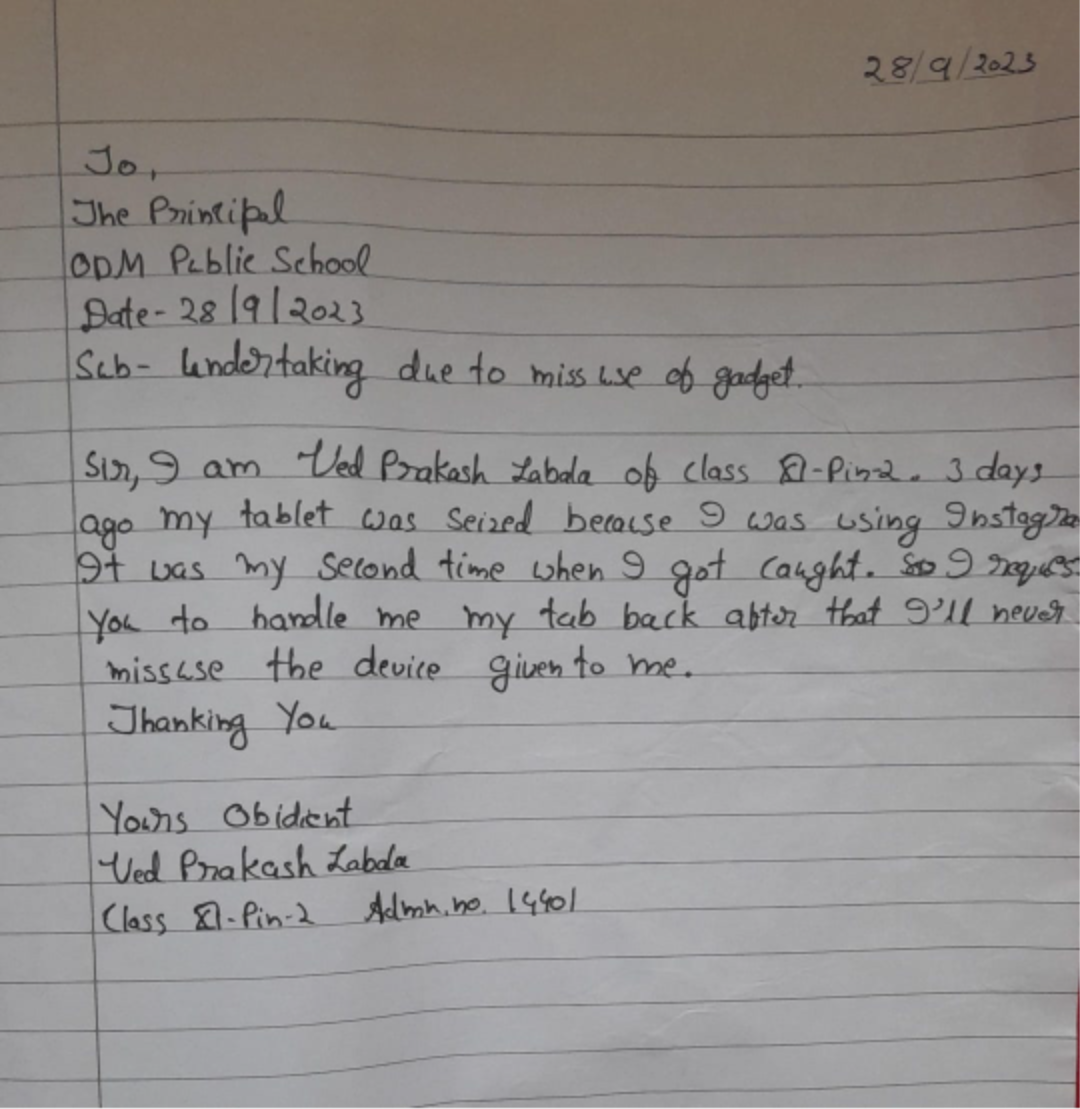 28/9/2023
To,
The Principal
ODM Public School
Date- 28/9/2023
Sub- Undertaking due to miss use of gadget.
Sir, I am Ved Prakash Labala of class XI-Pin-2. 3 days
ago my tablet was seized because I was using Instagra
It was my second time when I got caught. So I reques
You to handle me my tab back after that I'll never
missuse the device given to me.
Thanking You
Yours Obidient
Ved Prakash Labala
Class XI-Pin-2 Admn.no. 14401